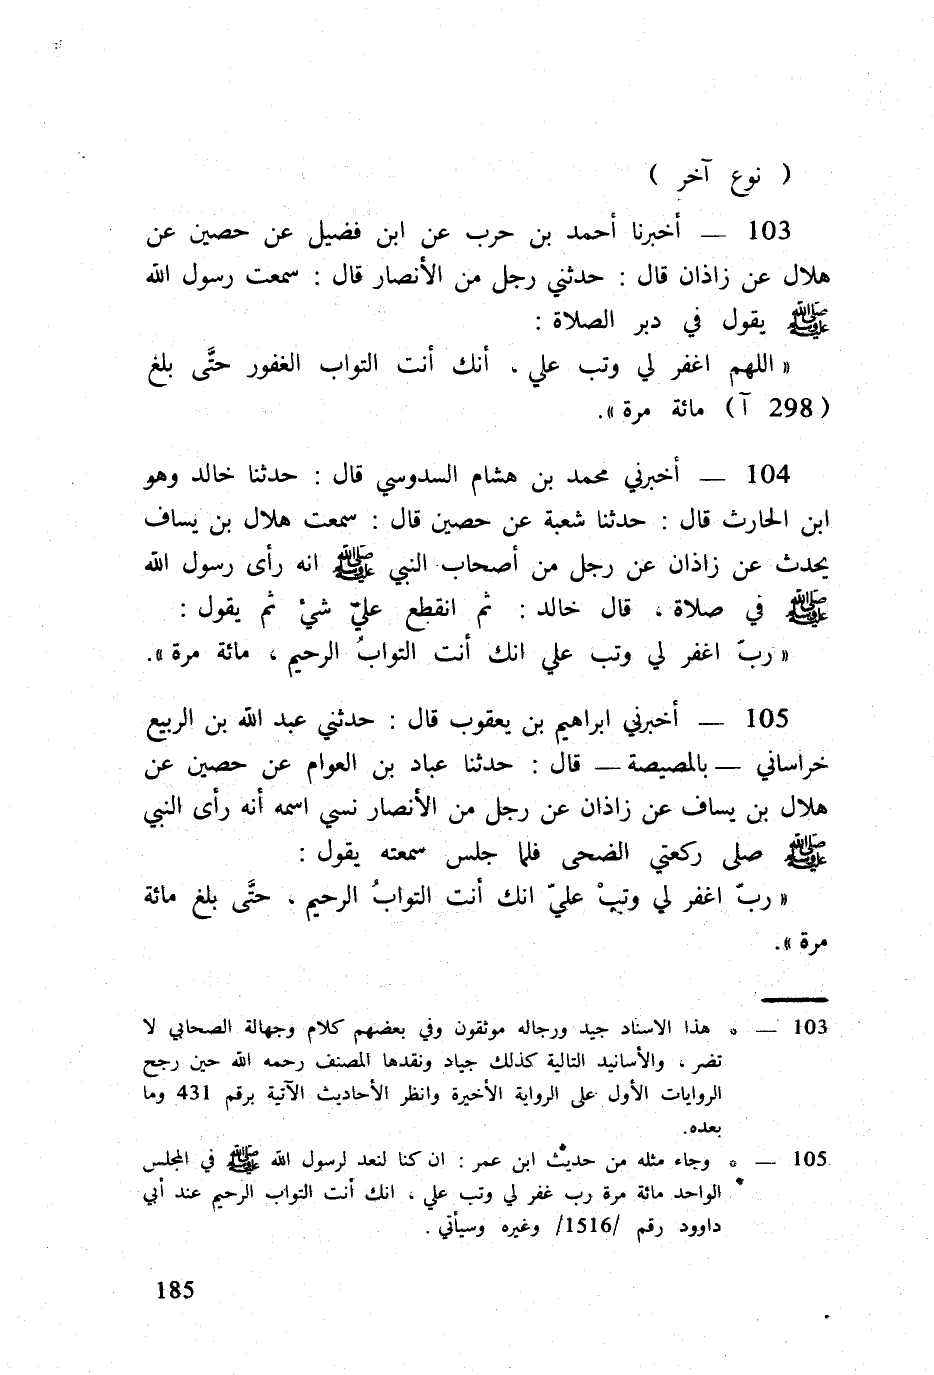 ( نوع آخر )
103 — أخبرنا أحمد بن حرب عن ابن فضيل عن حصين عن
هلال عن زاذان قال : حدثني رجل من الأنصار قال : سمعت رسول الله
ﷺ يقول في دبر الصلاة :
« اللهم اغفر لي وتب علي ، أنك أنت التواب الغفور حتَّى بلغ
( 298 آ ) مائة مرة ».
104 — أخبرني محمد بن هشام السدوسي قال : حدثنا خالد وهو
ابن الحارث قال : حدثنا شعبة عن حصين قال : سمعت هلال بن يساف
يحدث عن زاذان عن رجل من أصحاب النبي ﷺ انه رأى رسول الله
ﷺ في صلاة ، قال خالد : ثم انقطع عليّ شيْ ثم يقول :
« ربّ اغفر لي وتب علي انك أنت التوابُ الرحيم ، مائة مرة ».
105 — أخبرني ابراهيم بن يعقوب قال : حدثني عبد الله بن الربيع
خراساني — بالمصيصة — قال : حدثنا عباد بن العوام عن حصين عن
هلال بن يساف عن زاذان عن رجل من الأنصار نسي اسمه أنه رأى النبي
ﷺ صلى ركعتي الضحى فلما جلس سمعته يقول :
« ربّ اغفر لي وتبْ عليّ انك أنت التوابُ الرحيم ، حتَّى بلغ مائة
مرة ».
103 — * هذا الاسناد جيد ورجاله موثقون وفي بعضهم كلام وجهالة الصحابي لا
تضر ، والأسانيد التالية كذلك جياد ونقدها المصنف رحمه الله حين رجح
الروايات الأول على الرواية الأخيرة وانظر الأحاديث الآتية برقم 431 وما
بعده.
105 — * وجاء مثله من حديث ابن عمر : ان كنا لنعد لرسول الله ﷺ في المجلس
الواحد مائة مرة رب غفر لي وتب علي ، انك أنت التواب الرحيم عند أبي
داوود رقم /1516/ وغيره وسيأتي .
185